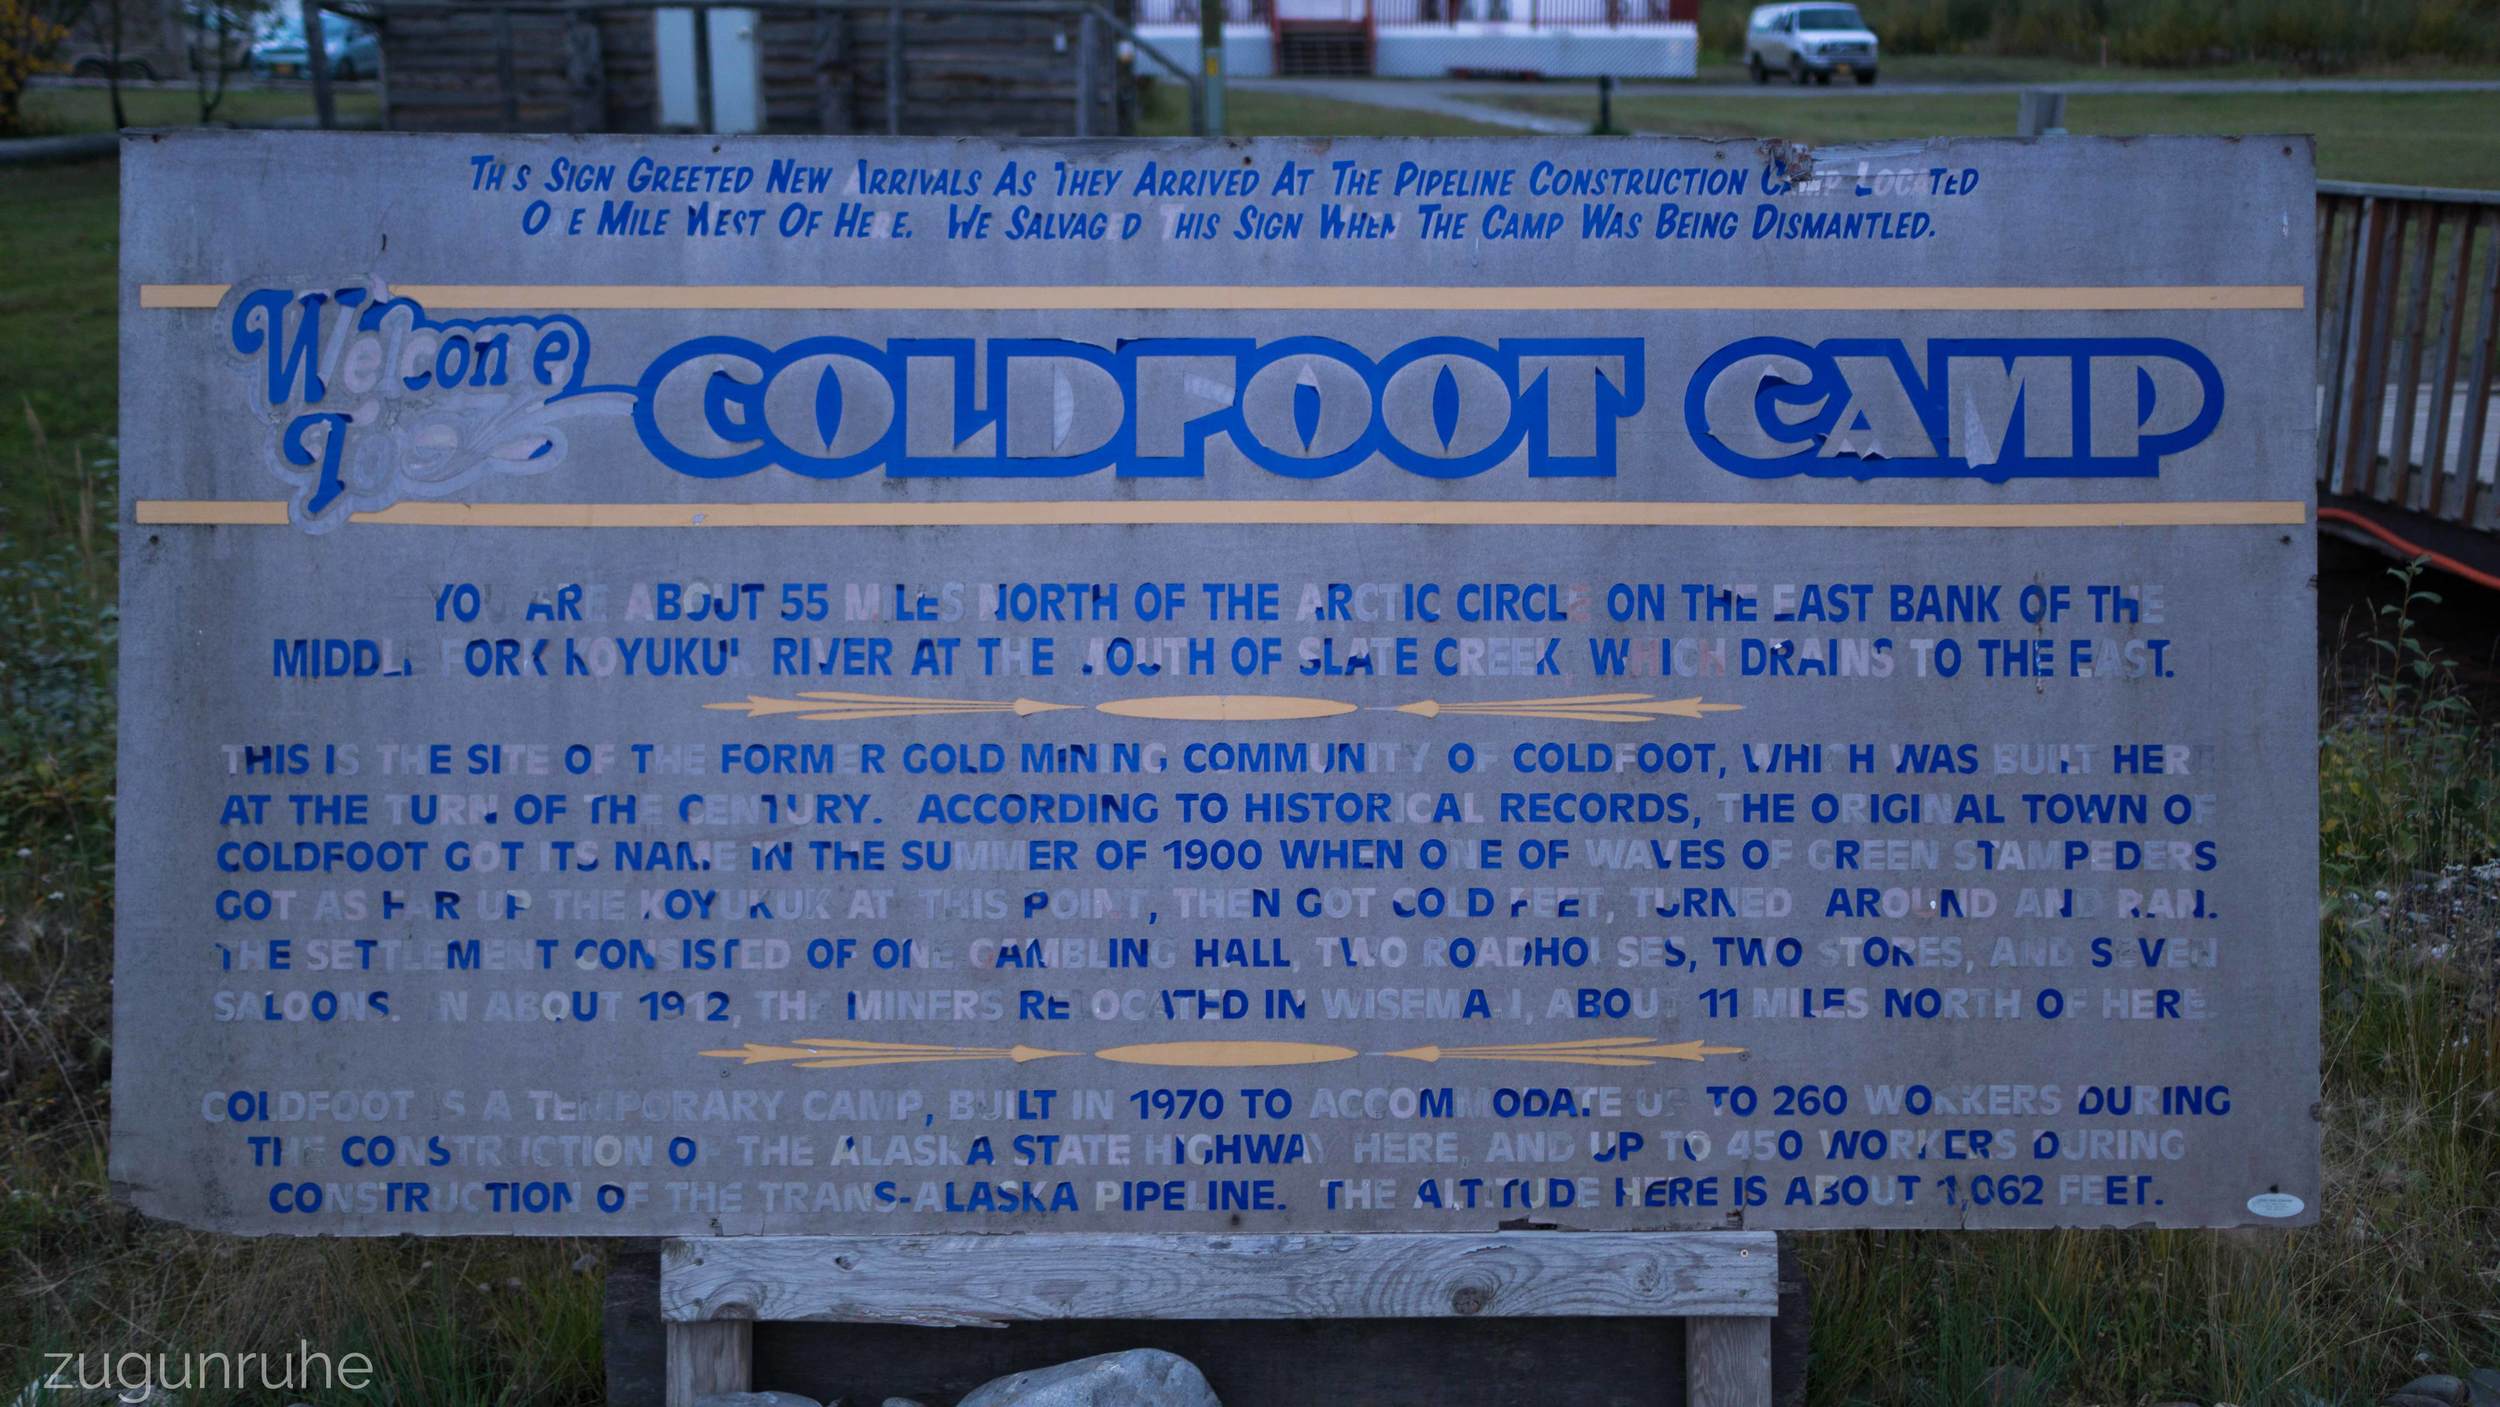 This Sign Greeted New Arrivals As They Arrived At The Pipeline Construction Camp Located
One Mile West Of Here. We Salvaged This Sign When The Camp Was Being Dismantled.
Welcome To COLDFOOT CAMP
YOU ARE ABOUT 55 MILES NORTH OF THE ARCTIC CIRCLE ON THE EAST BANK OF THE
MIDDLE FORK KOYUKUK RIVER AT THE MOUTH OF SLATE CREEK, WHICH DRAINS TO THE EAST.
THIS IS THE SITE OF THE FORMER GOLD MINING COMMUNITY OF COLDFOOT, WHICH WAS BUILT HERE
AT THE TURN OF THE CENTURY. ACCORDING TO HISTORICAL RECORDS, THE ORIGINAL TOWN OF
COLDFOOT GOT ITS NAME IN THE SUMMER OF 1900 WHEN ONE OF WAVES OF GREEN STAMPEDERS
GOT AS FAR UP THE KOYUKUK AT THIS POINT, THEN GOT COLD FEET, TURNED AROUND AND RAN.
THE SETTLEMENT CONSISTED OF ONE GAMBLING HALL, TWO ROADHOUSES, TWO STORES, AND SEVEN
SALOONS. IN ABOUT 1912, THE MINERS RELOCATED IN WISEMAN, ABOUT 11 MILES NORTH OF HERE.
COLDFOOT IS A TEMPORARY CAMP, BUILT IN 1970 TO ACCOMMODATE UP TO 260 WORKERS DURING
THE CONSTRUCTION OF THE ALASKA STATE HIGHWAY HERE, AND UP TO 450 WORKERS DURING
CONSTRUCTION OF THE TRANS-ALASKA PIPELINE. THE ALTITUDE HERE IS ABOUT 1,062 FEET.
zugunruhe